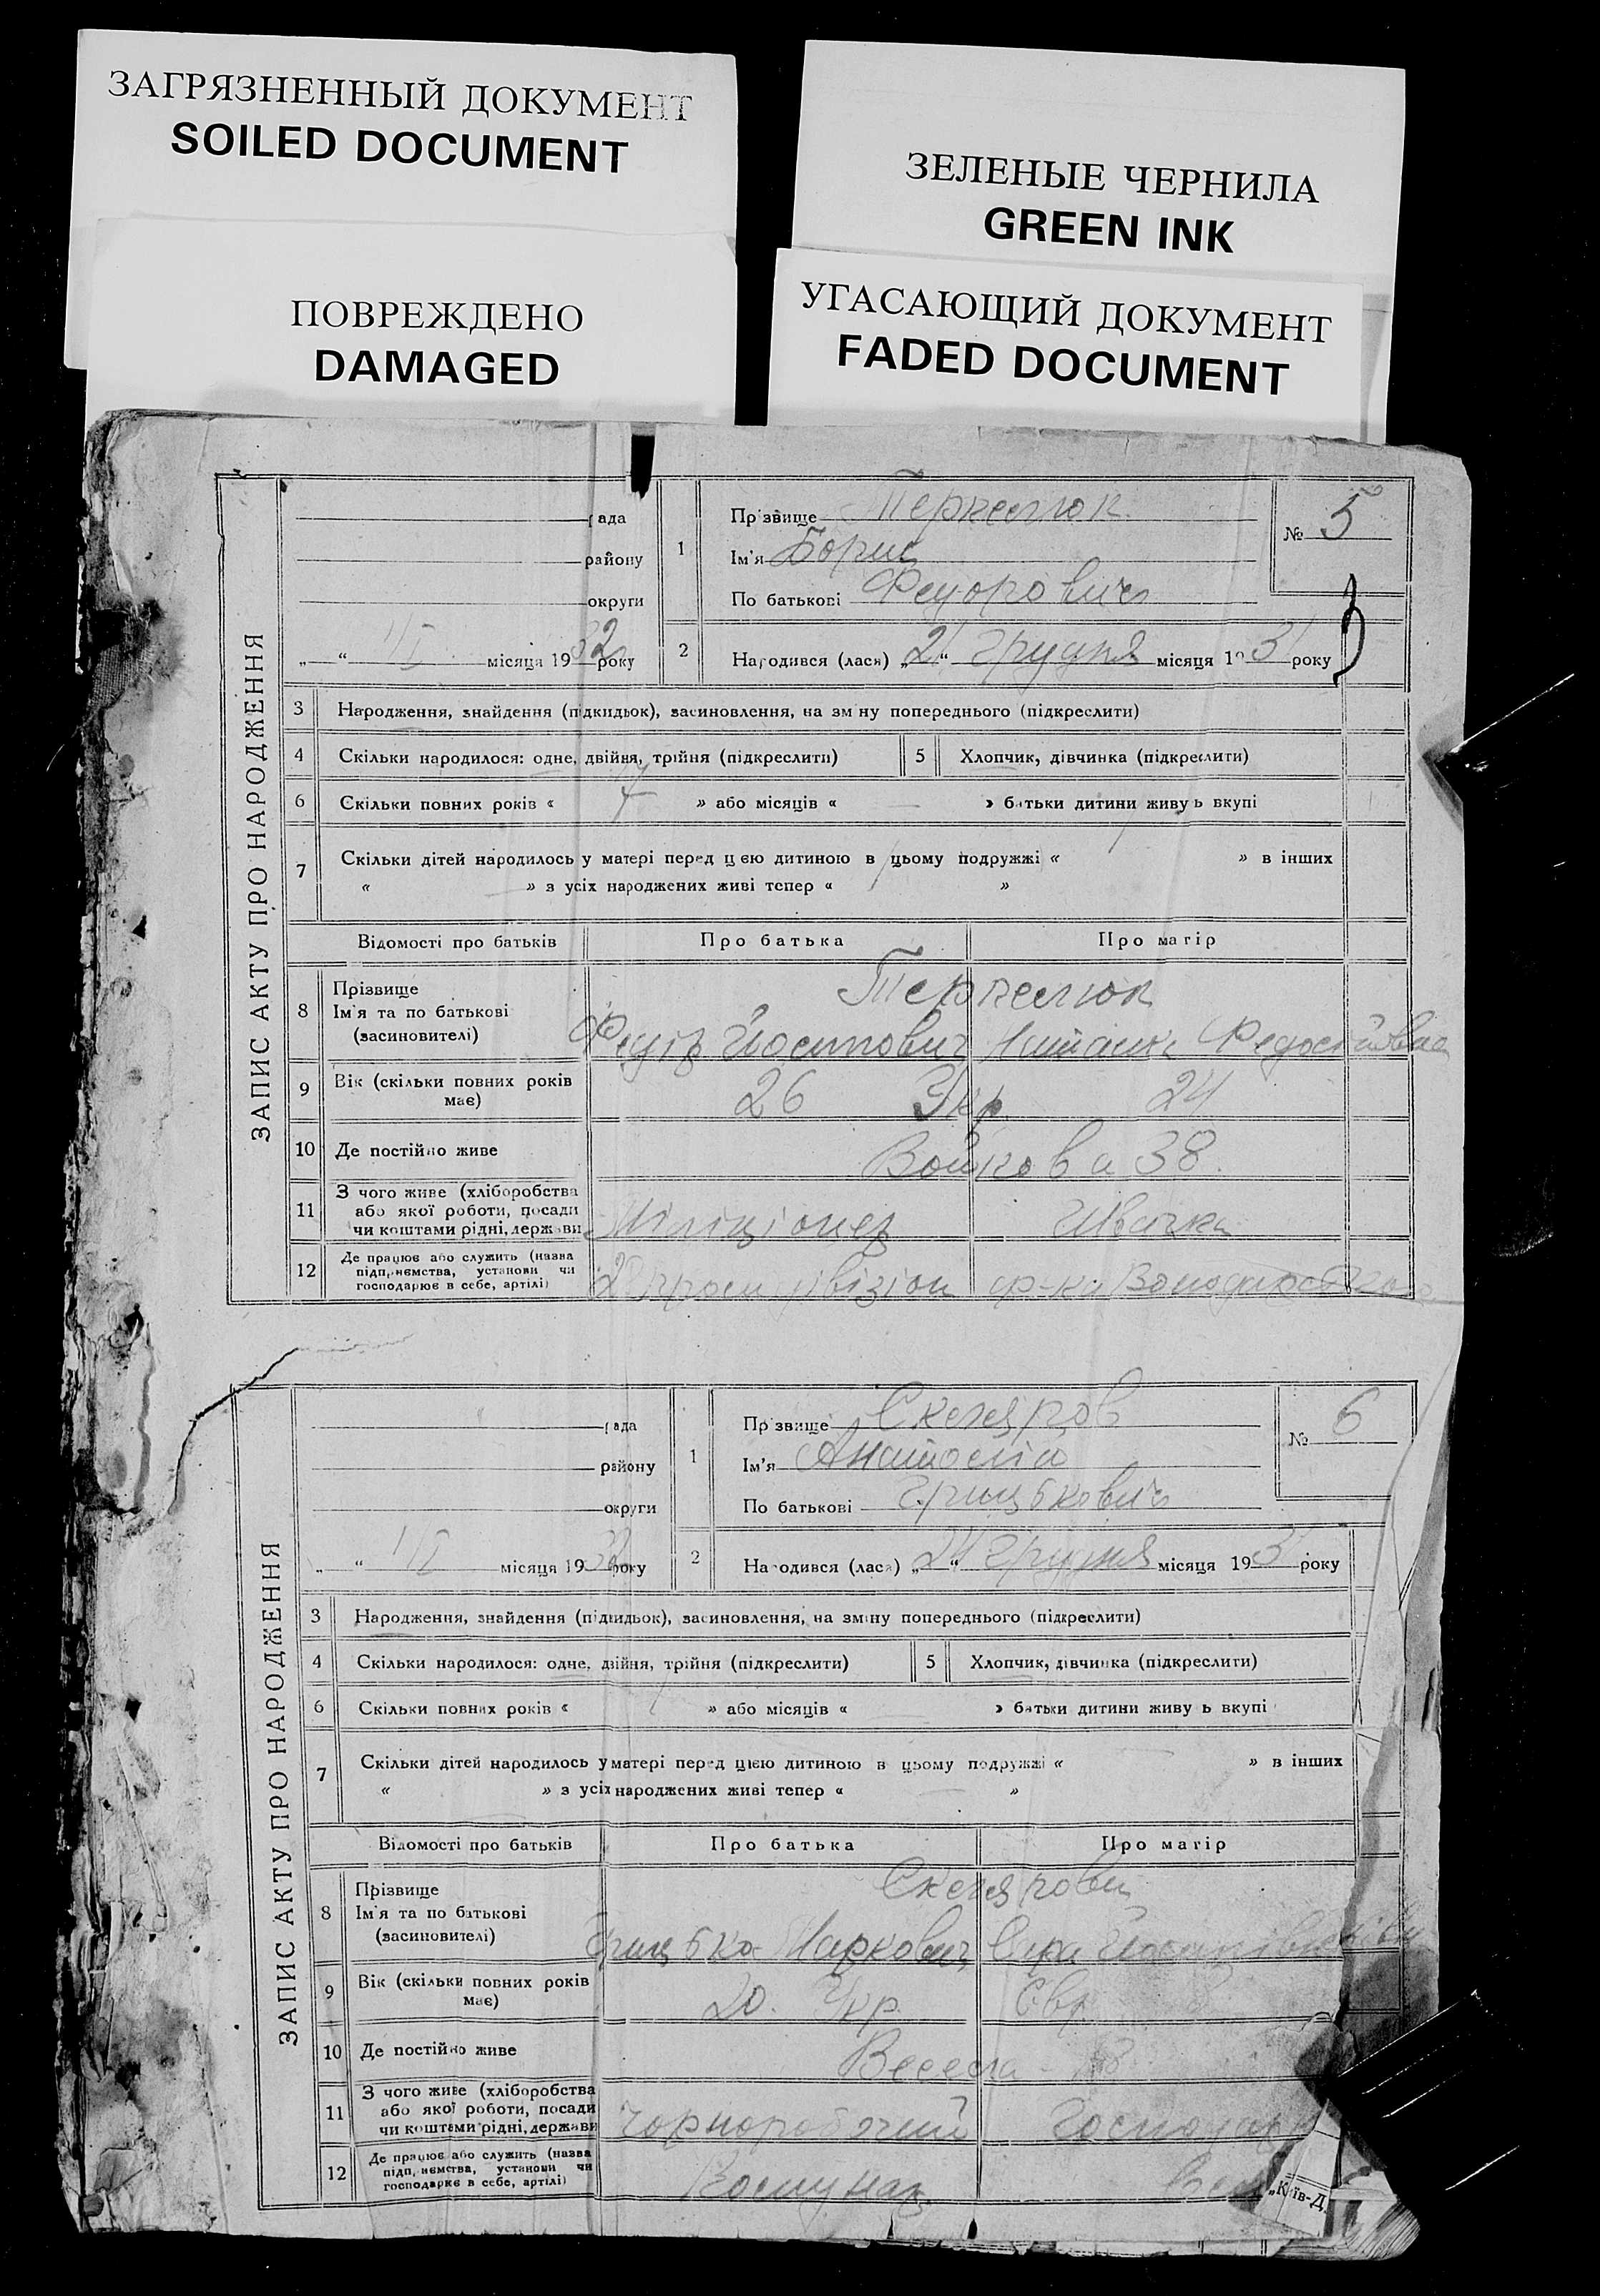 ЗАГРЯЗНЕННЫЙ ДОКУМЕНТ
SOILED DOCUMENT
ЗЕЛЕНЫЕ ЧЕРНИЛА
GREEN INK
ПОВРЕЖДЕНО
DAMAGED
УГАСАЮЩИЙ ДОКУМЕНТ
FADED DOCUMENT
ЗАПИС АКТУ ПРО НАРОДЖЕННЯ
рада
району
округи
„ “ 1/I місяця 1932 року
1
Прізвище
Ім'я Борис
По батькові Федорович
№ 5
2 Народився (лася) „21“ Грудня місяця 1931 року
3 Народження, знайдення (підкидьок), засиновлення, на зміну попереднього (підкреслити)
4 Скільки народилося: одне, двійня, трійня (підкреслити) 5 Хлопчик, дівчинка (підкреслити)
6 Скільки повних років « 7 » або місяців « — » батьки дитини живуть вкупі
7 Скільки дітей народилось у матері перед цією дитиною в цьому подружжі « 1 » в інших
« — » з усіх народжених живі тепер « 1 »
Відомості про батьків Про батька Про матір
8 Прізвище
Ім'я та по батькові
(засиновителі)
Федір Йосипович
9 Вік (скільки повних років має) 26 Укр. 24
10 Де постійно живе Войкова 38.
11 З чого живе (хліборобства або якої роботи, посади чи коштами рідні, держави Міліціонер Швачка
12 Де працює або служить (назва підприємства, установи чи господарює в себе, артілі) дивізіон ф-ка Володарського
ЗАПИС АКТУ ПРО НАРОДЖЕННЯ
рада
району
округи
„ “ 1/I місяця 1932 року
1
Прізвище
Ім'я Анатолій
По батькові Грицькович
№ 6
2 Народився (лася) „24“ Грудня місяця 1931 року
3 Народження, знайдення (підкидьок), засиновлення, на зміну попереднього (підкреслити)
4 Скільки народилося: одне, двійня, трійня (підкреслити) 5 Хлопчик, дівчинка (підкреслити)
6 Скільки повних років « 1 » або місяців « — » батьки дитини живуть вкупі
7 Скільки дітей народилось у матері перед цією дитиною в цьому подружжі « — » в інших
« — » з усіх народжених живі тепер « — »
Відомості про батьків Про батька Про матір
8 Прізвище
Ім'я та по батькові
(засиновителі)
Грицько Маркович Сара
9 Вік (скільки повних років має) 20. Укр. Євр.
10 Де постійно живе Весела
11 З чого живе (хліборобства або якої роботи, посади чи коштами рідні, держави Чорноробочий
12 Де працює або служить (назва підприємства, установи чи господарює в себе, артілі) Комунар
„Київ-Д